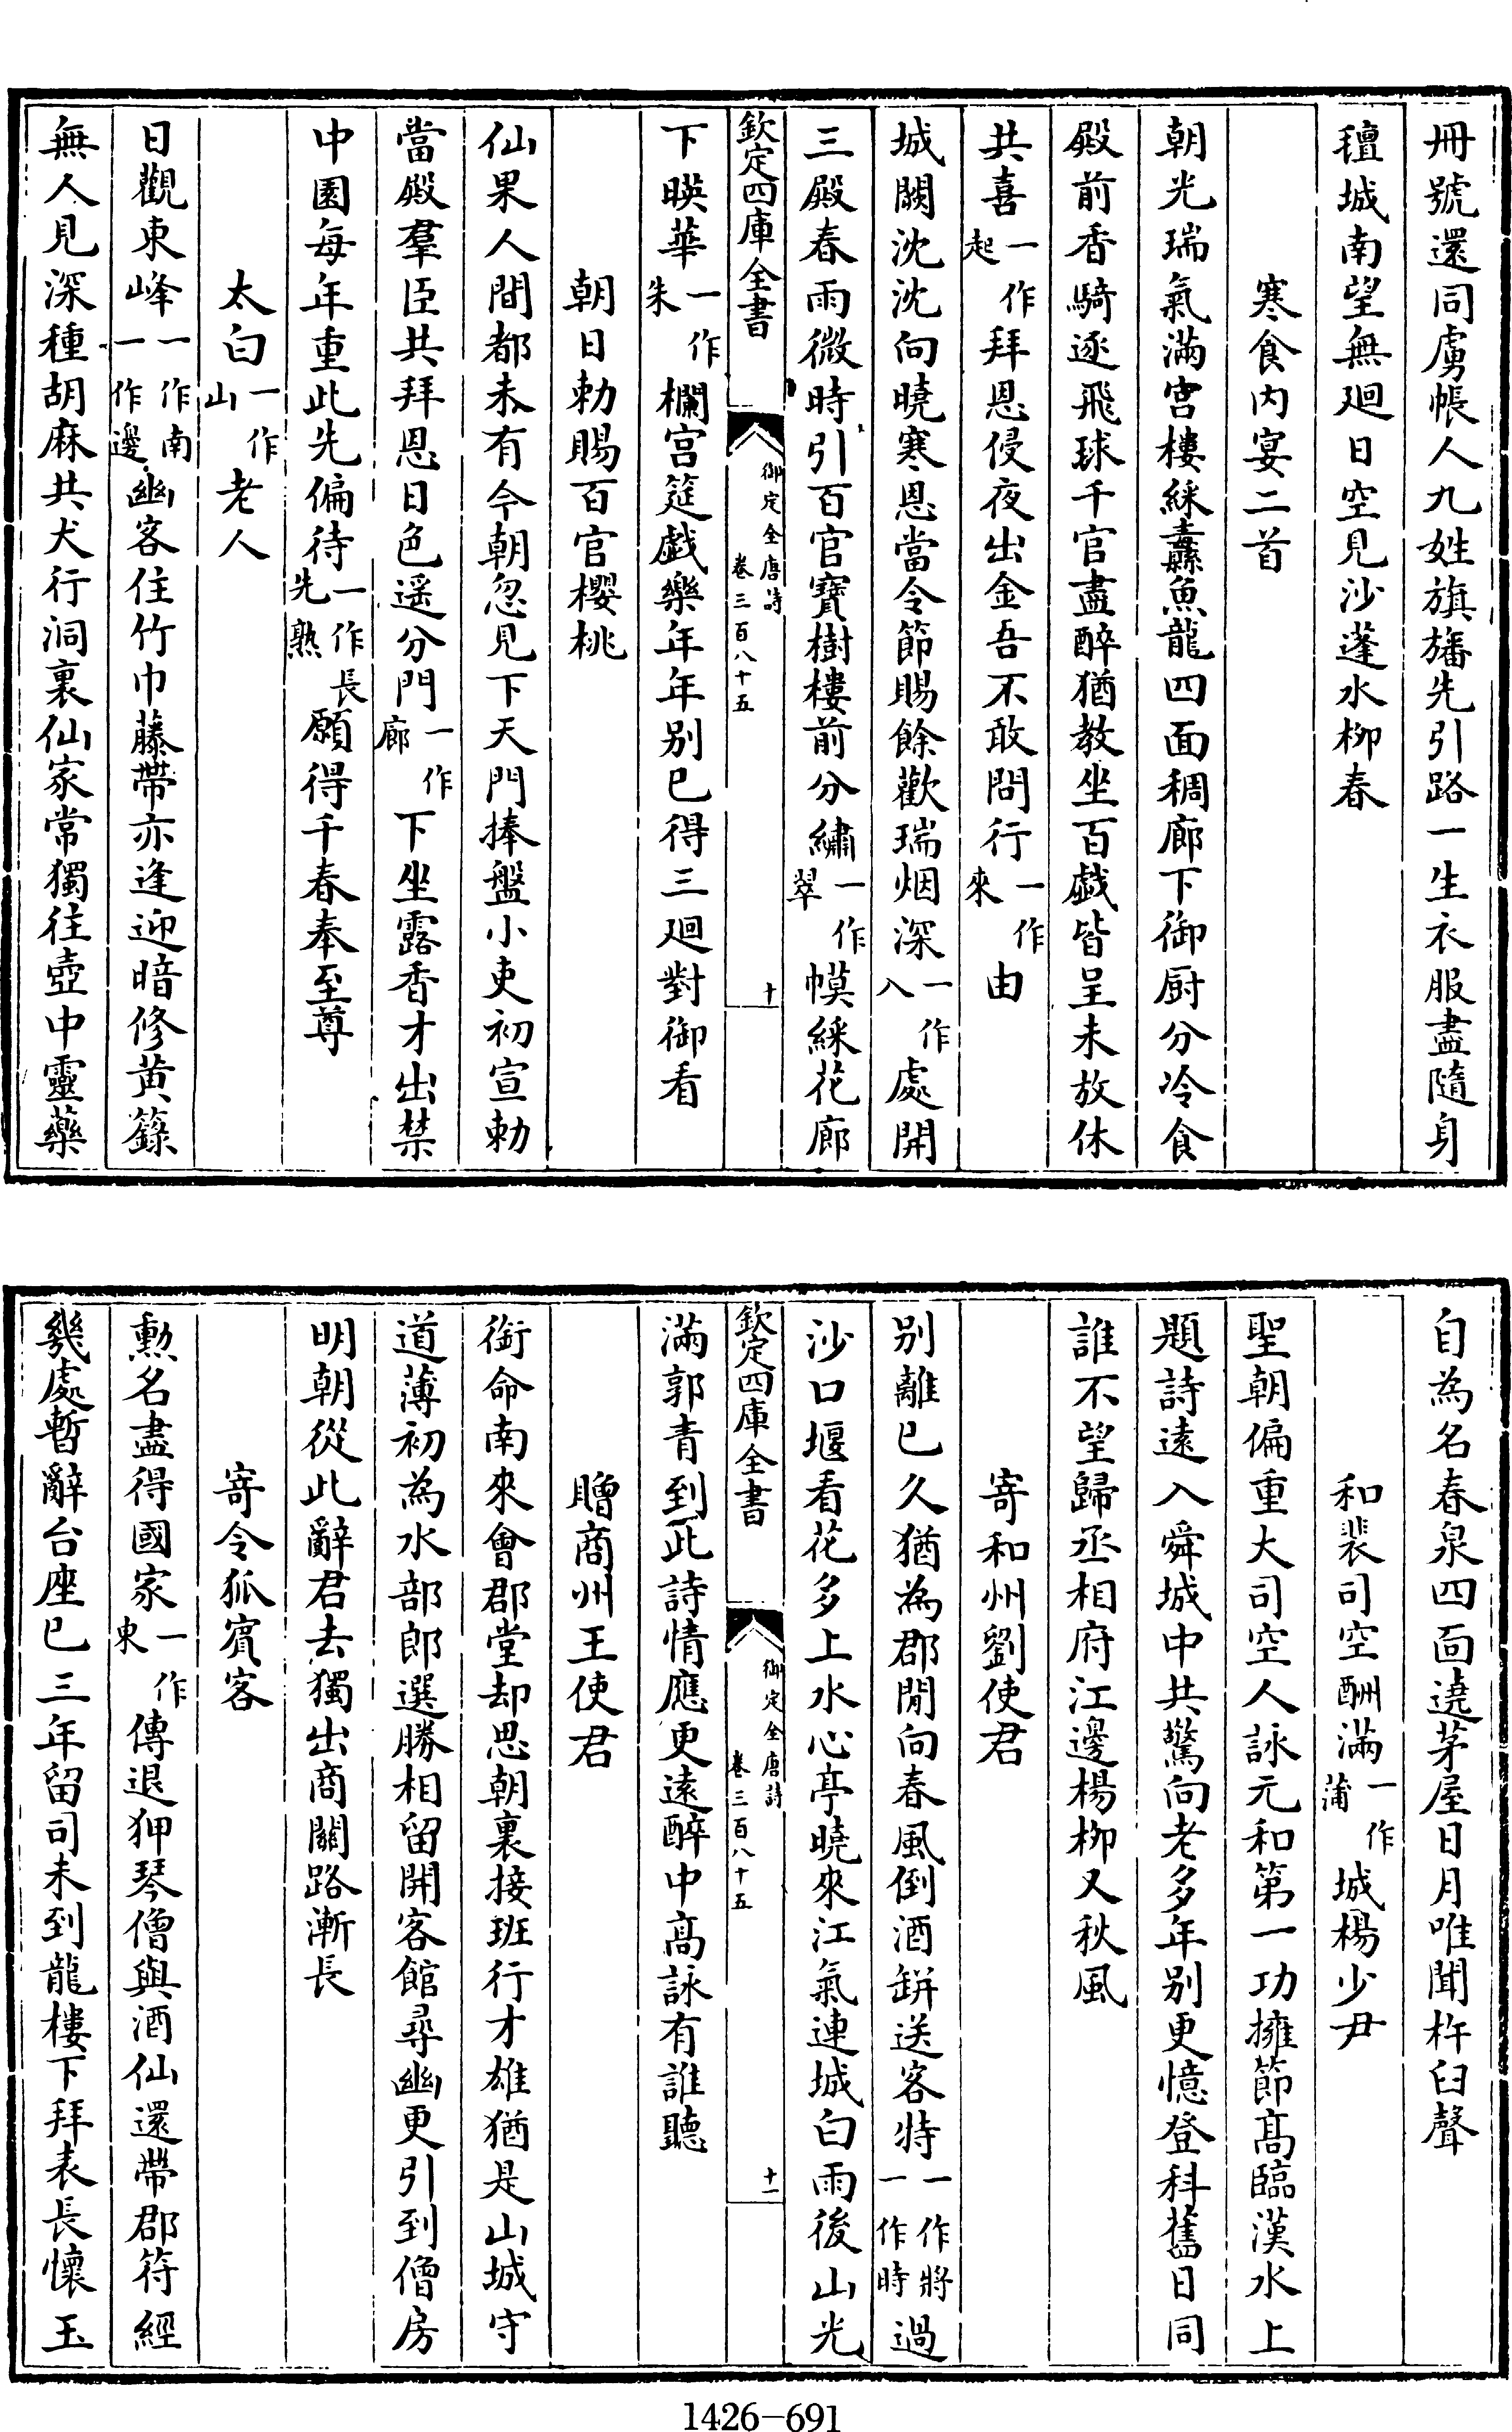 冊號還同虜帳人九姓旗旛先引路一生衣服盡隨身
氊城南望無廻日空見沙蓬水柳春
寒食内宴二首
朝光瑞氣滿宫樓綵纛魚龍四面稠廊下御厨分冷食
殿前香騎逐飛球千官盡醉猶教坐百戯皆呈未放休
共喜一作起拜恩侵夜出金吾不敢問行一作來由
城闕沈沈向曉寒恩當令節賜餘歡瑞烟深一作入處開
三殿春雨微時引百官寶樹樓前分繡一作翠幙綵花廊
欽定四庫全書 御定全唐詩 卷三百八十五 十
下暎華一作朱欄宫筵戯樂年年别已得三廻對御看
朝日勅賜百官櫻桃
仙果人間都未有今朝忽見下天門捧盤小吏初宣勅
當殿羣臣共拜恩日色遥分門一作廊下坐露香才出禁
中園每年重此先偏待一作長先熟願得千春奉至尊
太白一作山老人
日觀東峰一作南一作邊幽客住竹巾藤帶亦逢迎暗修黄籙
無人見深種胡麻共犬行洞裏仙家常獨往壺中靈藥
自為名春泉四面遶茅屋日月唯聞杵臼聲
和裴司空酬滿一作蒲城楊少尹
聖朝偏重大司空人詠元和第一功擁節髙臨漢水上
題詩遠入舜城中共驚向老多年别更憶登科舊日同
誰不望歸丞相府江邊楊柳又秋風
寄和州劉使君
别離已久猶為郡閒向春風倒酒缾送客特一作將一作時過
沙口堰看花多上水心亭曉來江氣連城白雨後山光
欽定四庫全書 御定全唐詩 卷三百八十五 十一
滿郭青到此詩情應更遠醉中髙詠有誰聽
贈商州王使君
銜命南來會郡堂却思朝裏接班行才雄猶是山城守
道薄初為水部郎選勝相留開客館尋幽更引到僧房
明朝從此辭君去獨出商關路漸長
寄令狐賓客
勲名盡得國家一作東傳退狎琴僧與酒仙還帶郡符經
幾處暫辭台座已三年留司未到龍樓下拜表長懷玉
1426-691